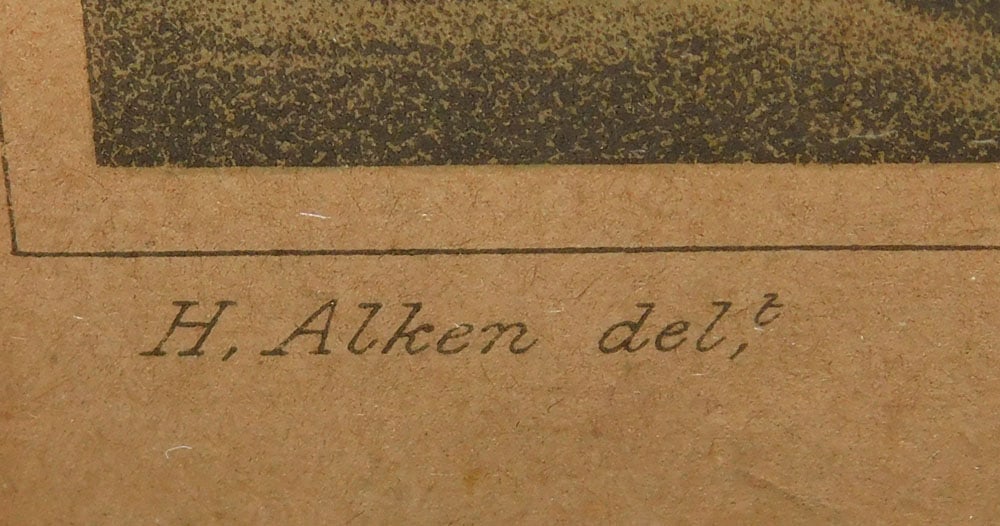 H, Alken del,t